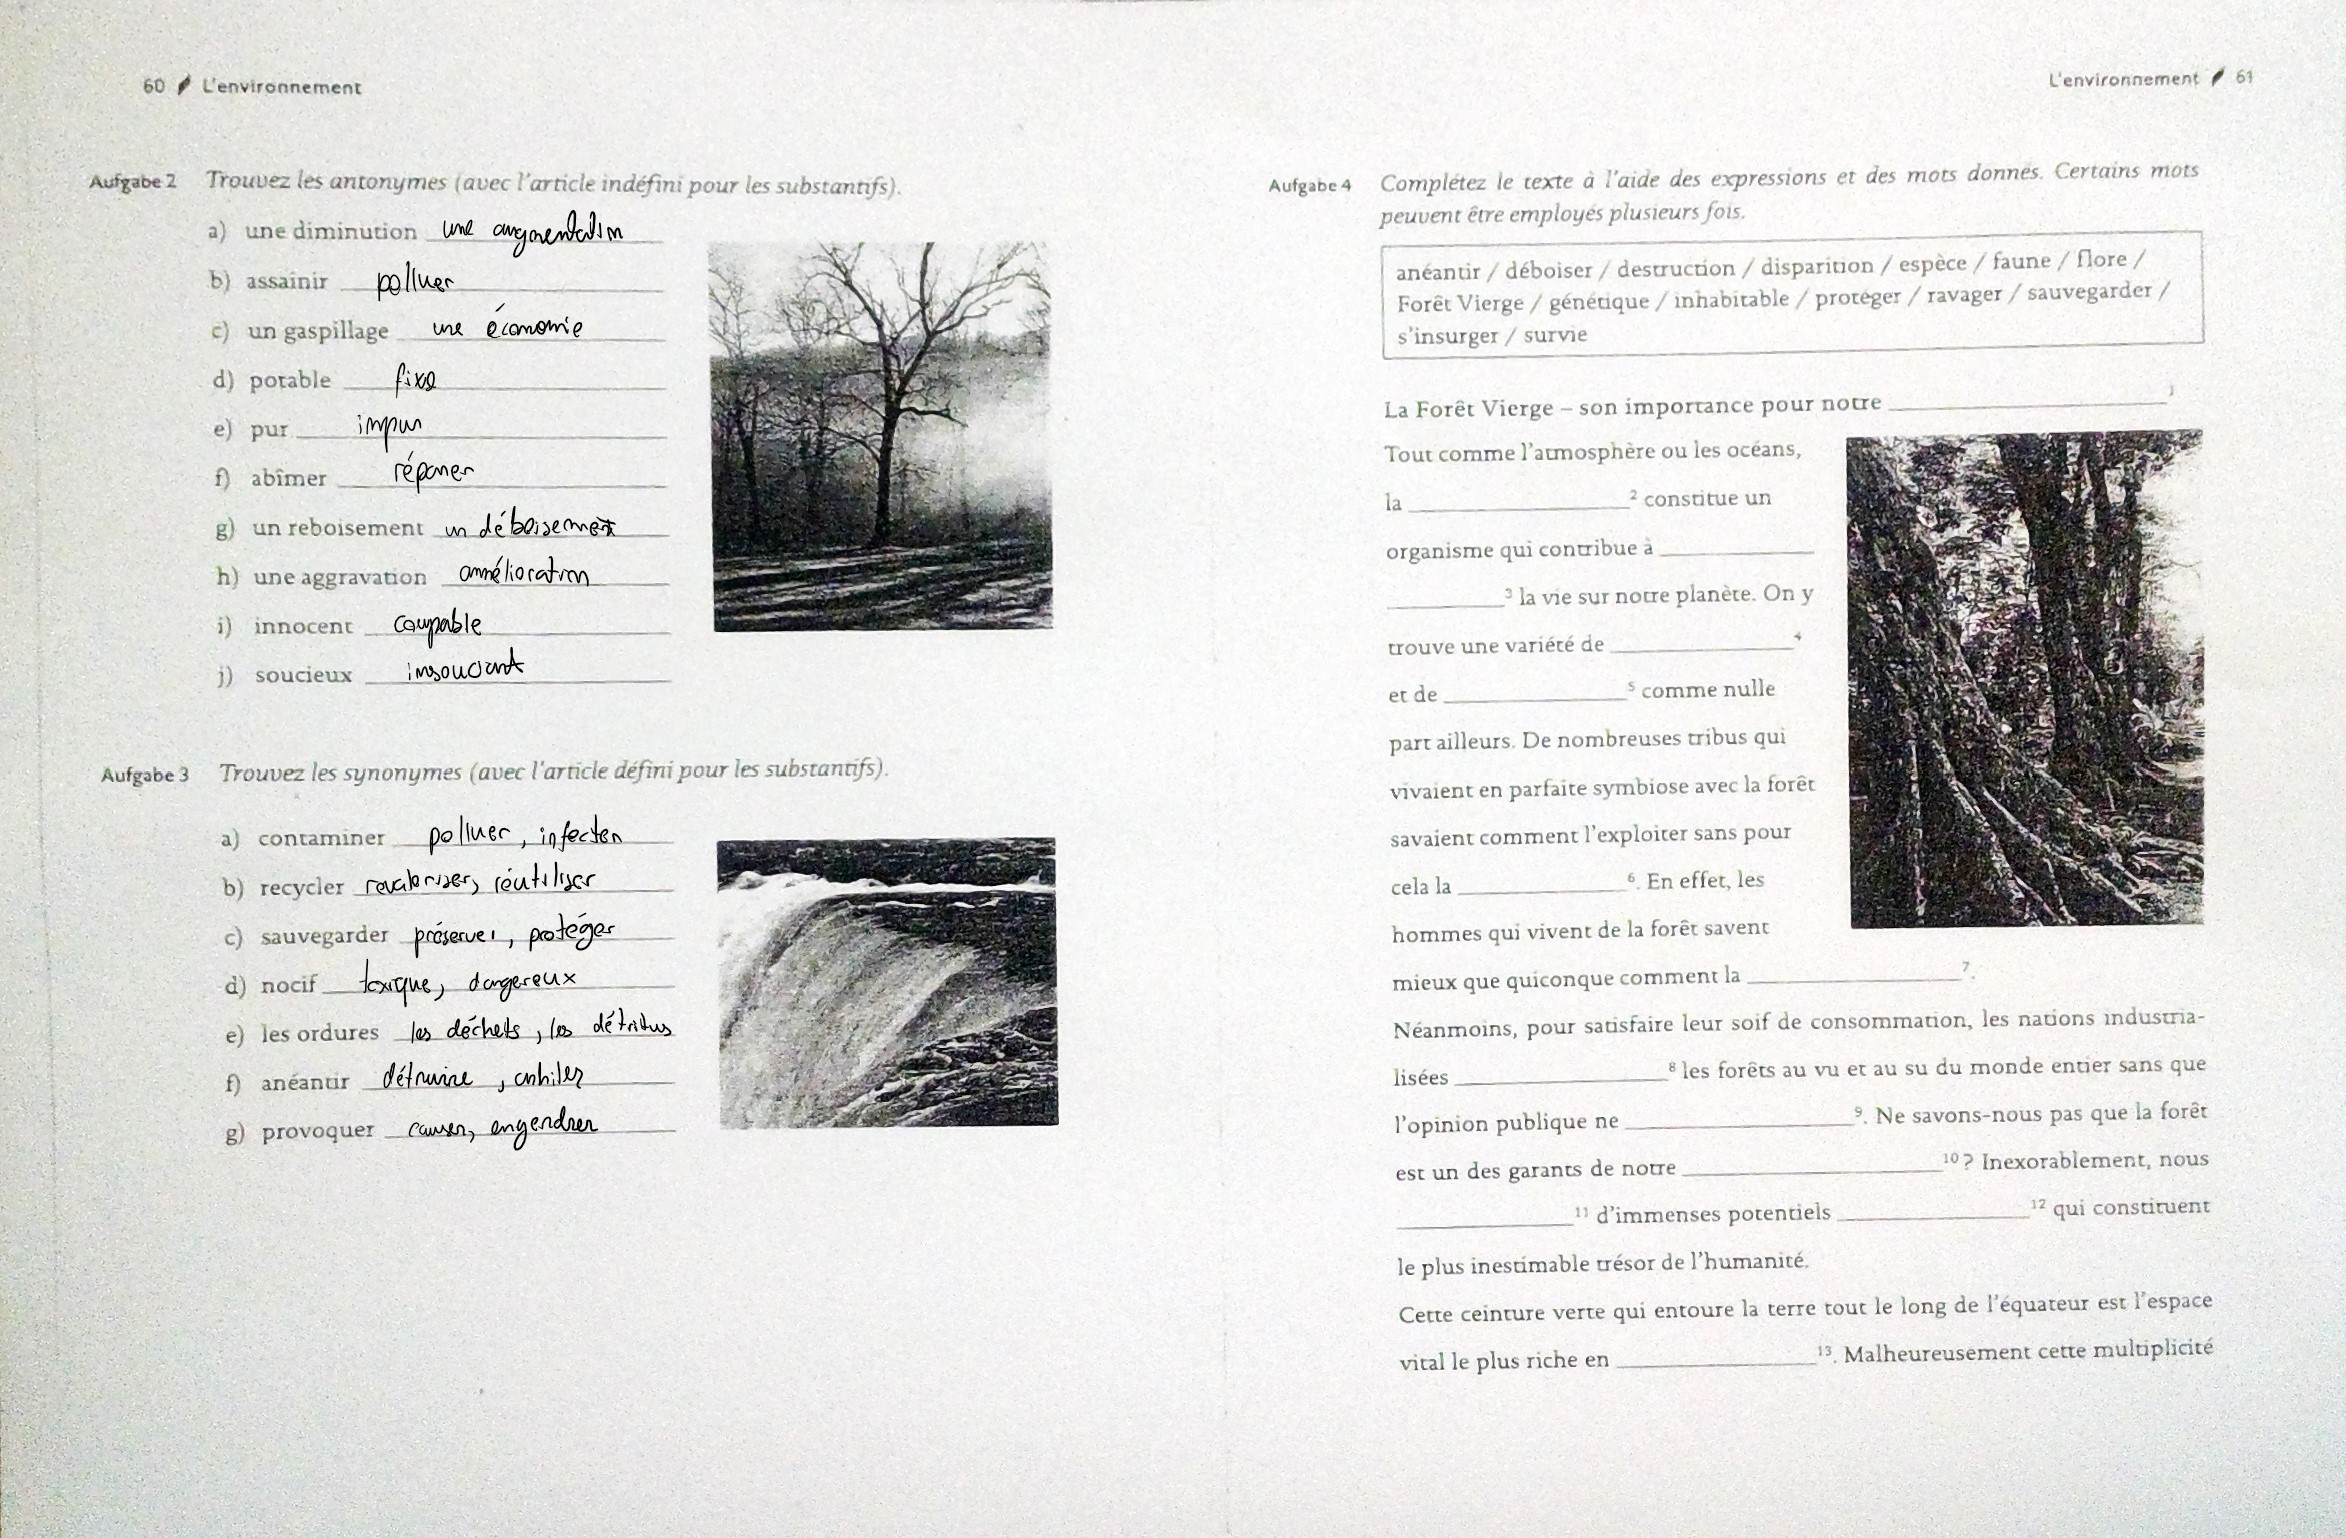 60 L'environnement
Aufgabe 2 Trouvez les antonymes (avec l'article indéfini pour les substantifs).
a) une diminution une augmentation
b) assainir polluer
c) un gaspillage une économie
d) potable fixe
e) pur impur
f) abîmer réparer
g) un reboisement un déboisement
h) une aggravation amélioration
i) innocent coupable
j) soucieux insouciant
Aufgabe 3 Trouvez les synonymes (avec l'article défini pour les substantifs).
a) contaminer polluer, infecter
b) recycler revaloriser, réutiliser
c) sauvegarder préserver, protéger
d) nocif toxique, dangereux
e) les ordures les déchets, les détritus
f) anéantir détruire,
g) provoquer causer, engendrer
L'environnement 61
Aufgabe 4 Complétez le texte à l'aide des expressions et des mots donnés. Certains mots
peuvent être employés plusieurs fois.
anéantir / déboiser / destruction / disparition / espèce / faune / flore /
Forêt Vierge / génétique / inhabitable / protéger / ravager / sauvegarder /
s'insurger / survie
La Forêt Vierge – son importance pour notre 1
Tout comme l'atmosphère ou les océans,
la 2 constitue un
organisme qui contribue à
3 la vie sur notre planète. On y
trouve une variété de 4
et de 5 comme nulle
part ailleurs. De nombreuses tribus qui
vivaient en parfaite symbiose avec la forêt
savaient comment l'exploiter sans pour
cela la 6. En effet, les
hommes qui vivent de la forêt savent
mieux que quiconque comment la 7.
Néanmoins, pour satisfaire leur soif de consommation, les nations industria-
lisées 8 les forêts au vu et au su du monde entier sans que
l'opinion publique ne 9. Ne savons-nous pas que la forêt
est un des garants de notre 10? Inexorablement, nous
11 d'immenses potentiels 12 qui constituent
le plus inestimable trésor de l'humanité.
Cette ceinture verte qui entoure la terre tout le long de l'équateur est l'espace
vital le plus riche en 13. Malheureusement cette multiplicité